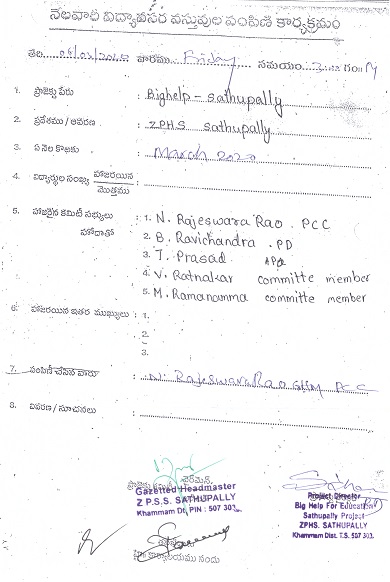 నెలవారీ విద్యావసర వస్తువుల పంపిణీ కార్యక్రమం
తేది. వారము Friday సమయం:
1. ప్రాజెక్టు పేరు : Bighelp - Sathupally
2. ప్రదేశము / ఆవరణ : ZPHS Sathupally
3. ఏ నెల కొఱకు : March 2020
4. విద్యార్థుల సంఖ్య హాజరయిన :
మొత్తము
5. హాజరైన కమిటీ సభ్యులు : 1. N. Rajeswara Rao. PCC
హోదాతో 2. B. Ravichandra . PD
3. T. Prasad APD
4. V. Ratnakar committe member
5. M. Ramanamma committe member
6. హాజరయిన ఇతర ముఖ్యులు : 1.
2.
3.
7. పంపిణీ చేసిన వారు : N. Rajeswara Rao GHM PCC
8. వివరణ / సూచనలు :
Gazetted Headmaster
Z P.S.S. SATHUPALLY
Khammam Dt, PIN : 507 303.
Project Director
Big Help For Education
Sathupally Project
ZPHS. SATHUPALLY
Khammam Dist. T.S. 507 303.